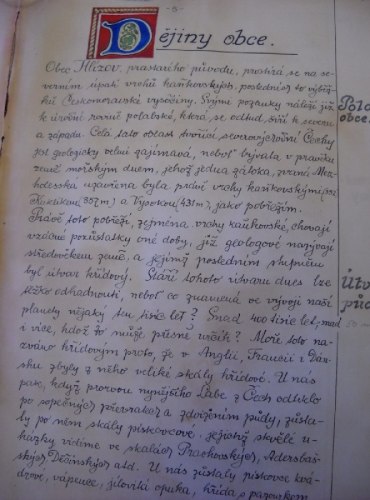 - 5 -
Dějiny obce.
Obec Hlízov, prastarého původu, prostírá se na se-
verním úpatí vrchů kaňkovských, posledních to výběž-
ků Českomoravské vysočiny. Svými pozemky náleží již
k úrodné rovině polabské, která se odtud šíří k severu
a západu. Celá tato oblast tvořící severovýchodní Čechy
jest geologicky velmi zajímavá, neboť bývala v pravěku
země mořským dnem, jehož jedna zátoka, zvaná
uzavřena byla právě vrchy kaňkovskými
357 m) a Vysokou (431 m), jako pobřežím.
Právě toto pobřeží, zejména vrchy kaňkovské, chovají
vzácné pozůstatky oné doby, již geologové nazývají
středověkem země, a jejímž posledním stupněm
byl útvar křídový. Stáří tohoto útvaru dnes lze
těžko odhadnouti, neboť co znamená ve vývoji naší
planety nějaký ten tisíc let? Snad 400 tisíc let, snad
i více, kdož to může přesně určit? Moře toto na-
zváno křídovým proto, že v Anglii, Francii i Dán-
sku zbyly z něho veliké skály křídové. U nás
pak, když prorvou nynějšího Labe z Čech odteklo
po sopečných převratech a zdvižením půdy, zůsta-
ly po něm skály pískovcové, jejichž skvělé u-
kázky vidíme ve skalách Prachovských, Adersba-
šských, Děčínských atd. U nás zůstaly pískovce kva-
drové, vápence, jílovitá opuka, křída s pazourkem
obce.
Útv
půd